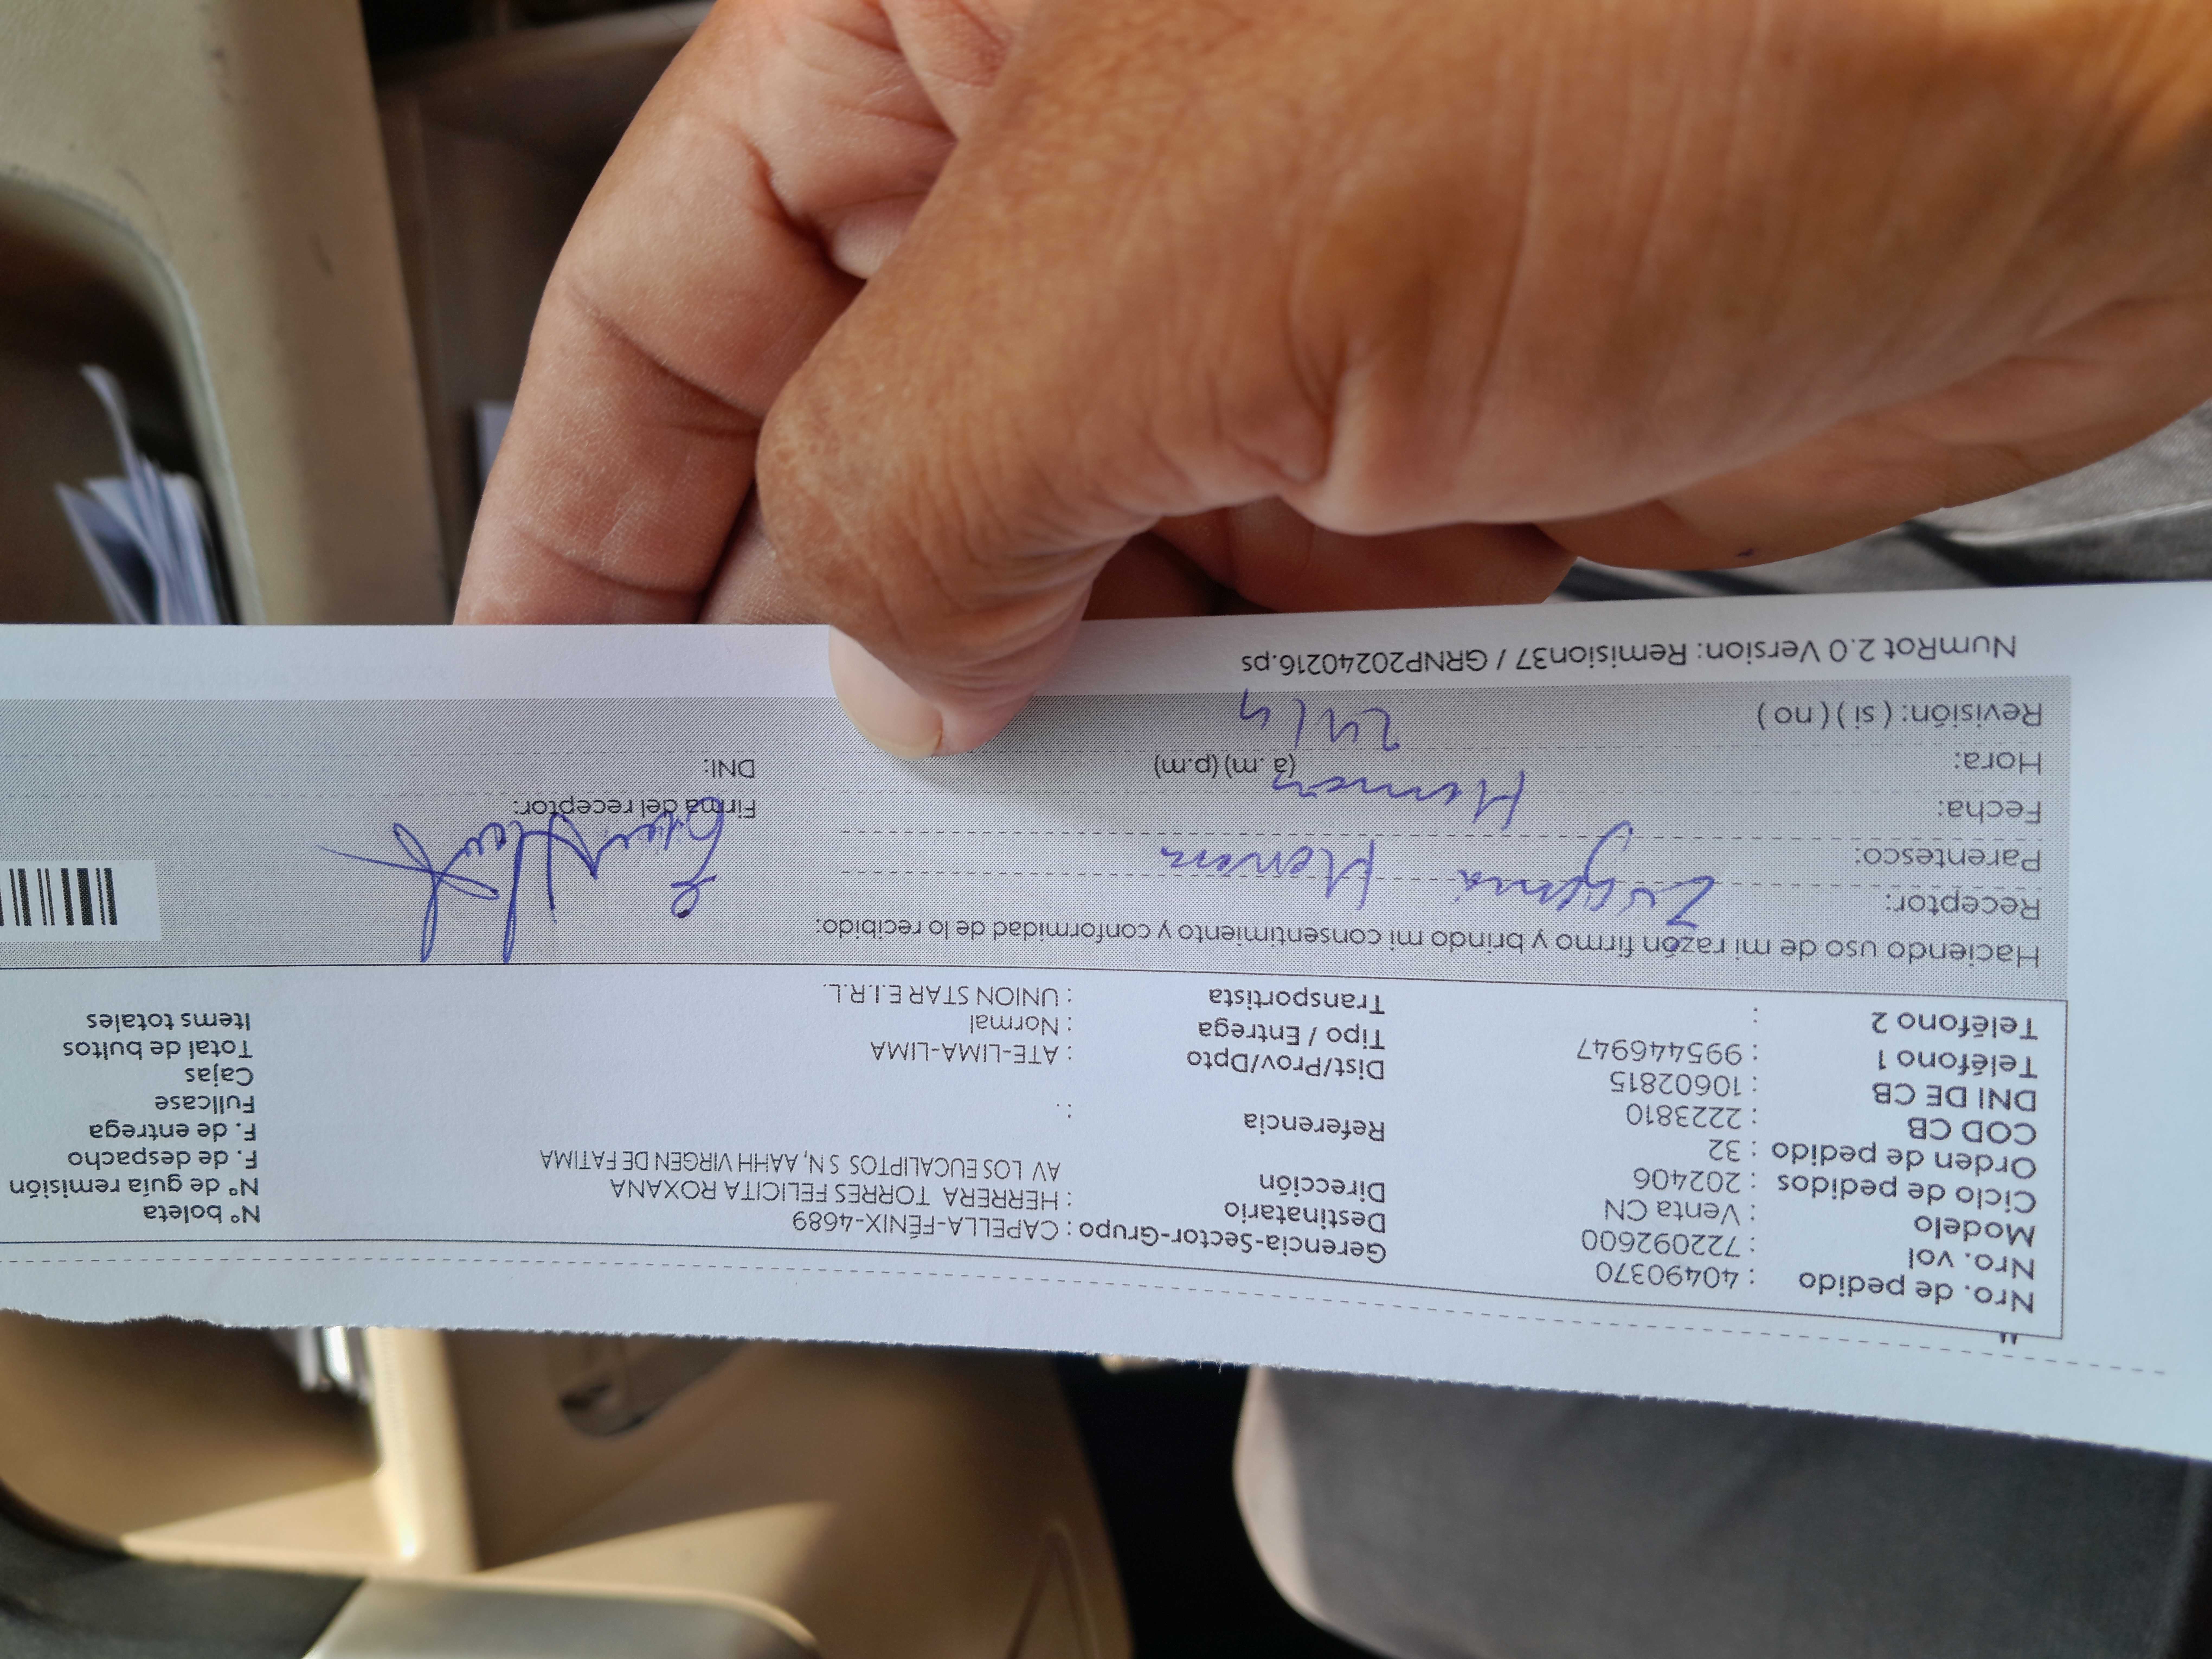 Nro. de pedido : 40490370
Nro. vol : 722092600
Modelo : Venta CN
Ciclo de pedidos : 202406
Orden de pedido : 32
COD CB : 2223810
DNI DE CB : 10602815
Teléfono 1 : 995446947
Teléfono 2 :
Gerencia-Sector-Grupo : CAPELLA-FÉNIX-4689
Destinatario : HERRERA TORRES FELICITA ROXANA
Dirección AV LOS EUCALIPTOS S N, AAHH VIRGEN DE FATIMA
Referencia : .
Dist/Prov/Dpto : ATE-LIMA-LIMA
Tipo / Entrega : Normal
Transportista : UNION STAR E.I.R.L.
N° boleta
N° de guía remisión
F. de despacho
F. de entrega
Fullcase
Cajas
Total de bultos
Items totales
Haciendo uso de mi razón firmo y brindo mi consentimiento y conformidad de lo recibido:
Receptor:
Parentesco:
Fecha:
Hora: (a .m) (p.m)
Revisión: ( si ) ( no )
Firma del receptor:
DNI:
NumRot 2.0 Version: Remision37 / GRNP20240216.ps